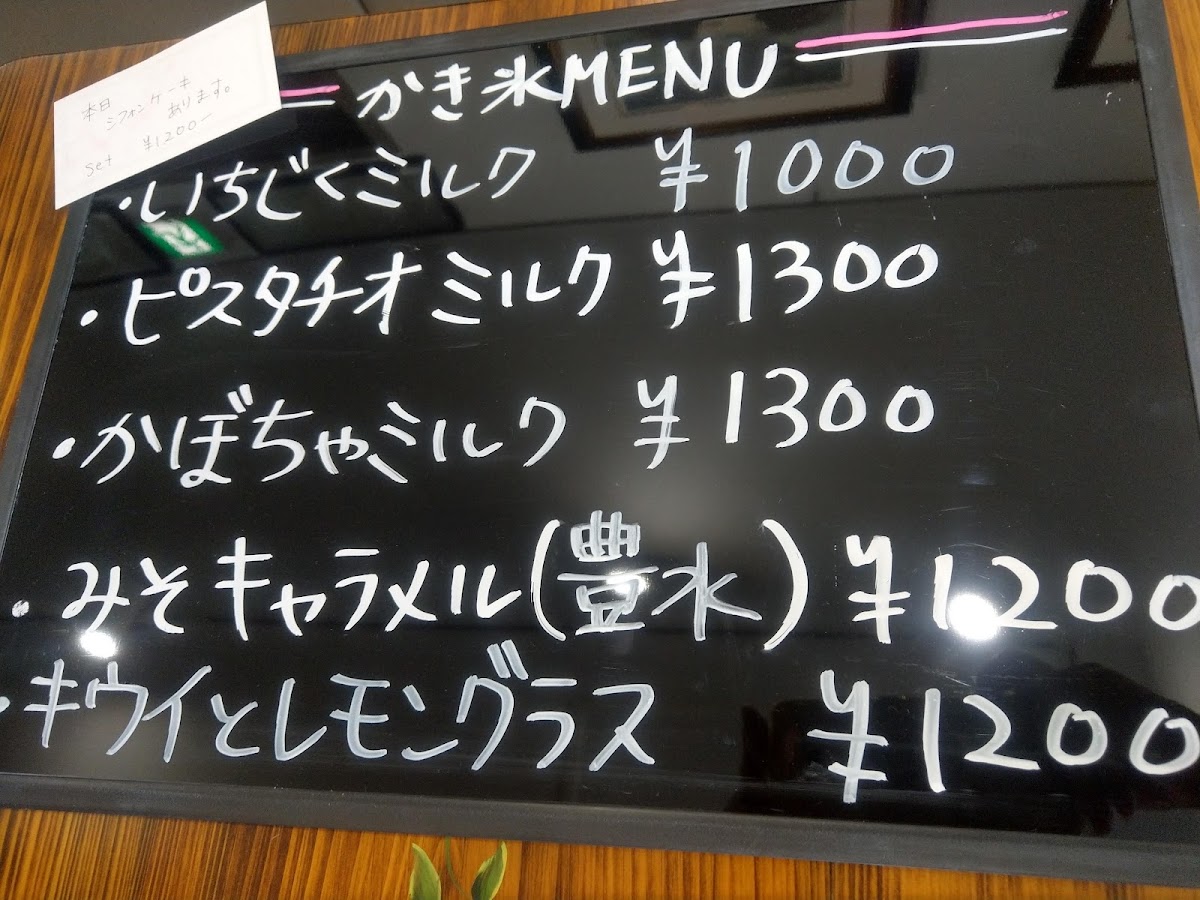 かき氷MENU
本日
シフォンケーキ
あります。
Set ¥1200-
・いちじくミルク ¥1000
・ピスタチオミルク ¥1300
・かぼちゃミルク ¥1300
・みそキャラメル(豊水) ¥1200
・キウイとレモングラス ¥1200